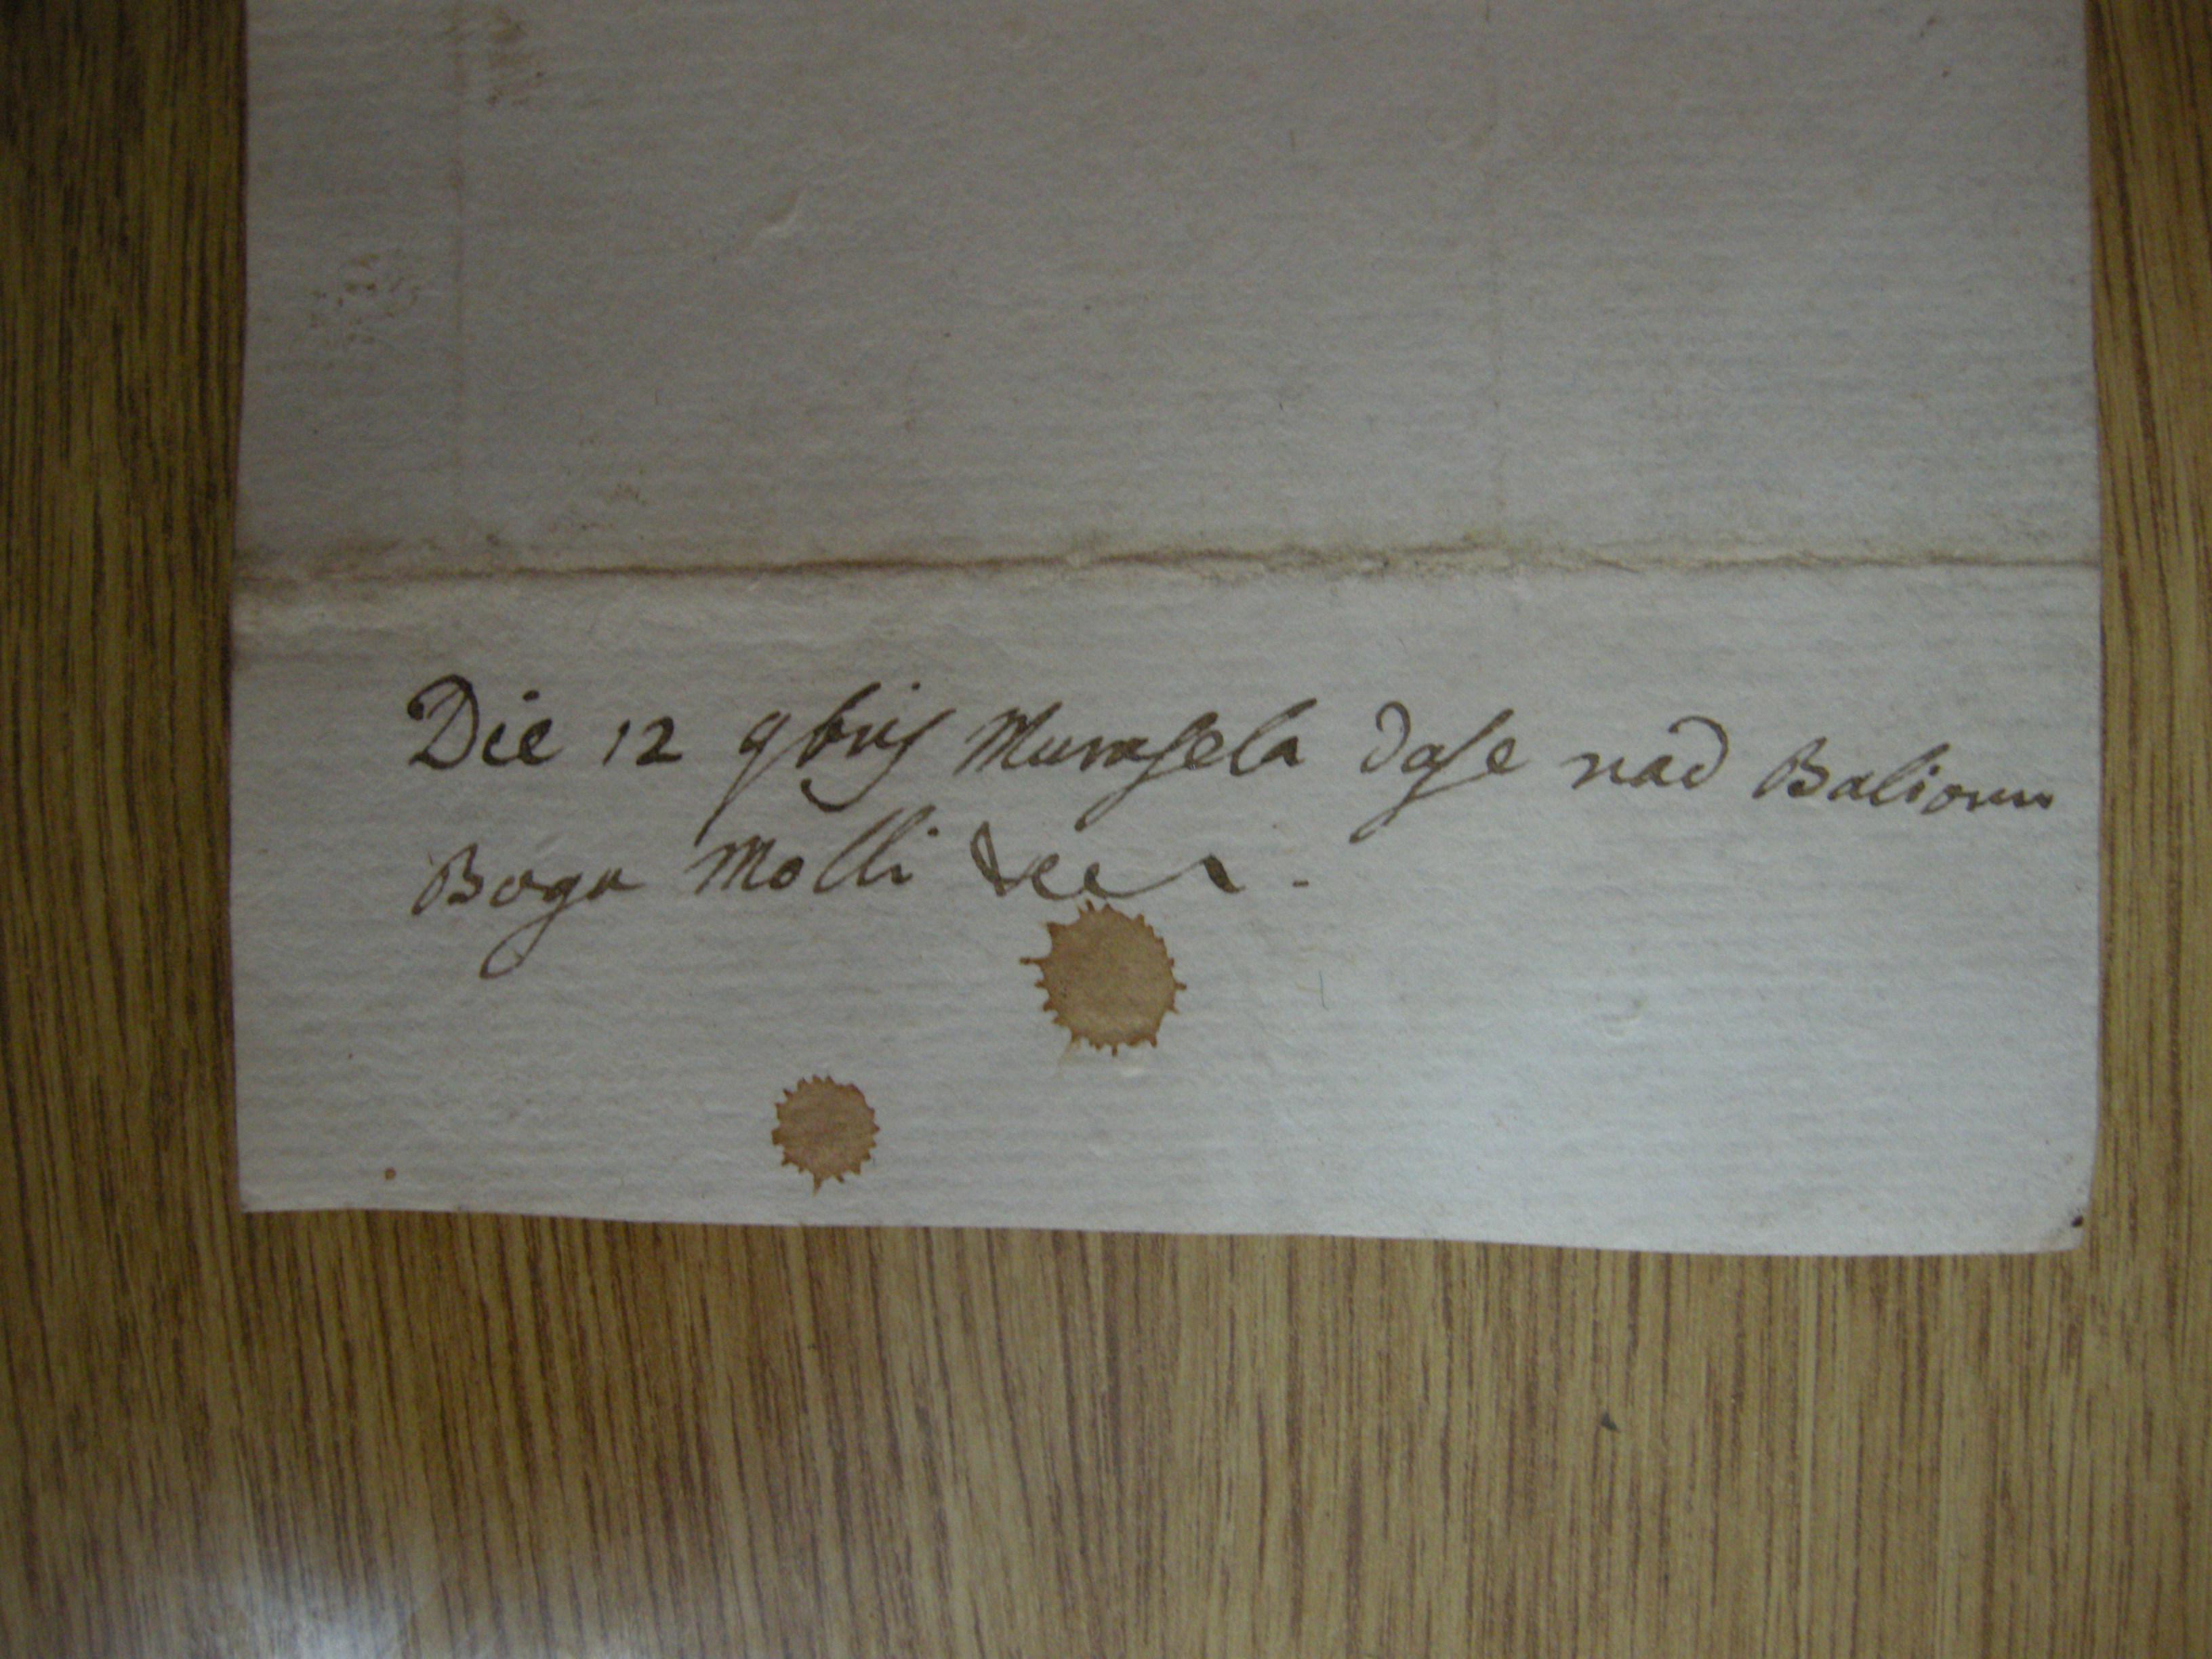 Die 12 9bris Murasela dase nad Baliom
Boga Molli &cc.